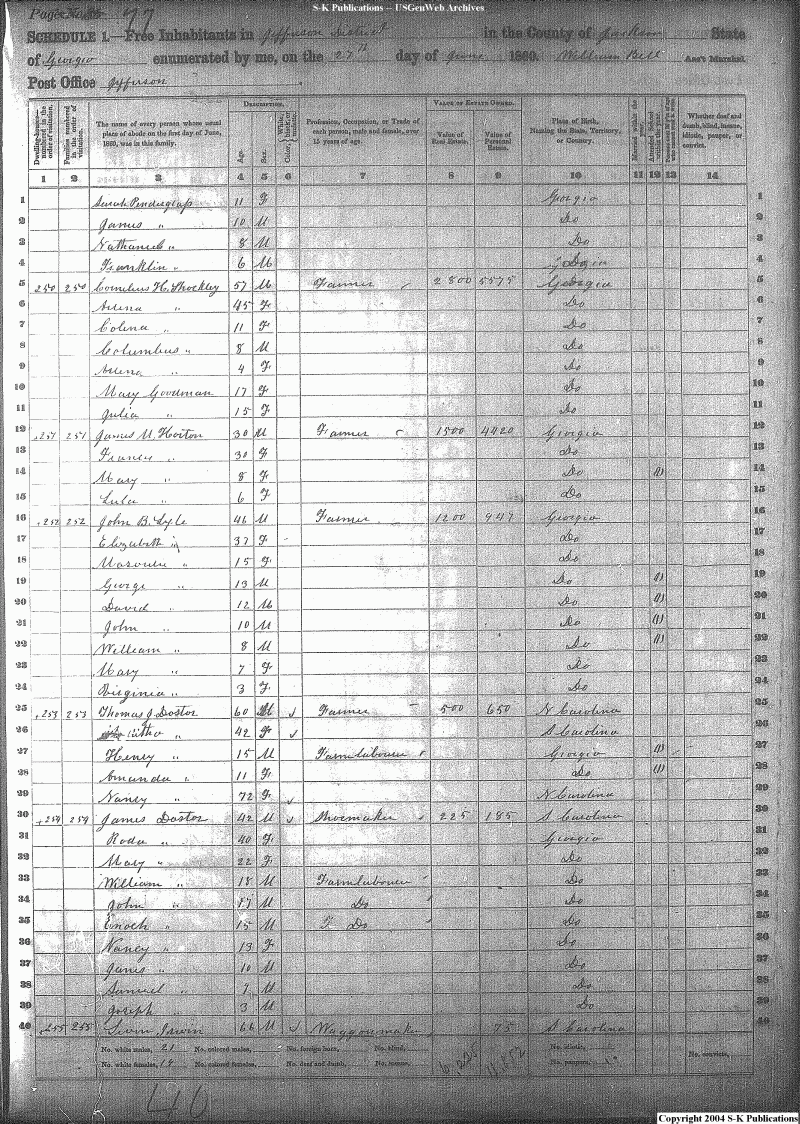 S-K Publications -- USGenWeb Archives
Page No. 77
SCHEDULE 1.—Free Inhabitants in Jefferson District in the County of Jackson State
of Georgia enumerated by me, on the 27th day of June 1860. William Bell Ass't Marshal.
Post Office Jefferson
Dwelling-houses—numbered in the order of visitation. Families numbered in the order of visitation. The name of every person whose usual place of abode on the first day of June, 1860, was in this family. DESCRIPTION. Age. Sex. Color, Profession, Occupation, or Trade of each person, male and female, over 15 years of age. VALUE OF ESTATE OWNED. Value of Real Estate. Value of Personal Estate. Place of Birth, Naming the State, Territory, or Country. Married within the year. Attended School Whether deaf and dumb, blind, insane, idiotic, pauper, or convict.
1 2 3 4 5 6 7 8 9 10 11 12 13 14
1 Sarah Pendergrass 11 F Georgia 1
2 James " 10 M Do 2
3 Nathaniel " 8 M Do 3
4 Franklin " 6 M Do 4
5 250 250 Cornelius H. Shockley 57 M Farmer 2800 5575 Georgia 5
6 " 45 F Do 6
7 " 11 F Do 7
8 Columbus " 8 M Do 8
9 " 4 F Do 9
10 Mary Goodman 17 F Do 10
11 Julia " 15 F Do 11
12 251 251 James M. Horton 30 M Farmer 1500 4420 Georgia 12
13 " 30 F Do 13
14 Mary " 8 F Do (1) 14
15 Lula " 6 F Do 15
16 252 252 John B. Lyle 46 M Farmer 1200 947 Georgia 16
17 Elizabeth " 37 F Do 17
18 " 15 F Do 18
19 George " 13 M Do (1) 19
20 David " 12 M Do (1) 20
21 John " 10 M Do (1) 21
22 William " 8 M Do (1) 22
23 Mary " 7 F Do 23
24 Virginia " 3 F Do 24
25 253 253 Thomas J. Dostor 60 M Farmer 500 650 N Carolina 25
26 " 42 F S Carolina 26
27 Henry " 15 M Farmlabourer Georgia (1) 27
28 Amanda " 11 F Do (1) 28
29 Nancy " 72 F N Carolina 29
30 254 254 James Dostor 42 M Shoemaker 225 185 S Carolina 30
31 Roda " 40 F Georgia 31
32 Mary " 22 F Do 32
33 William " 18 M Farmlabourer Do 33
34 John " 17 M Do Do 34
35 Enoch " 15 M F Do Do 35
36 Nancy " 13 F Do 36
37 James " 10 M Do 37
38 Samuel " 7 M Do 38
39 Joseph " 3 M Do 39
40 255 255 Irwin 66 M Waggonmaker 75 S Carolina 40
No. white males, 21 No. colored males, No. foreign born, No. blind, No. idiotic, No. convicts,
No. white females, 19 No. colored females, No. deaf and dumb, No. insane, No. paupers,
6,225 11,852
40
Copyright 2004 S-K Publications